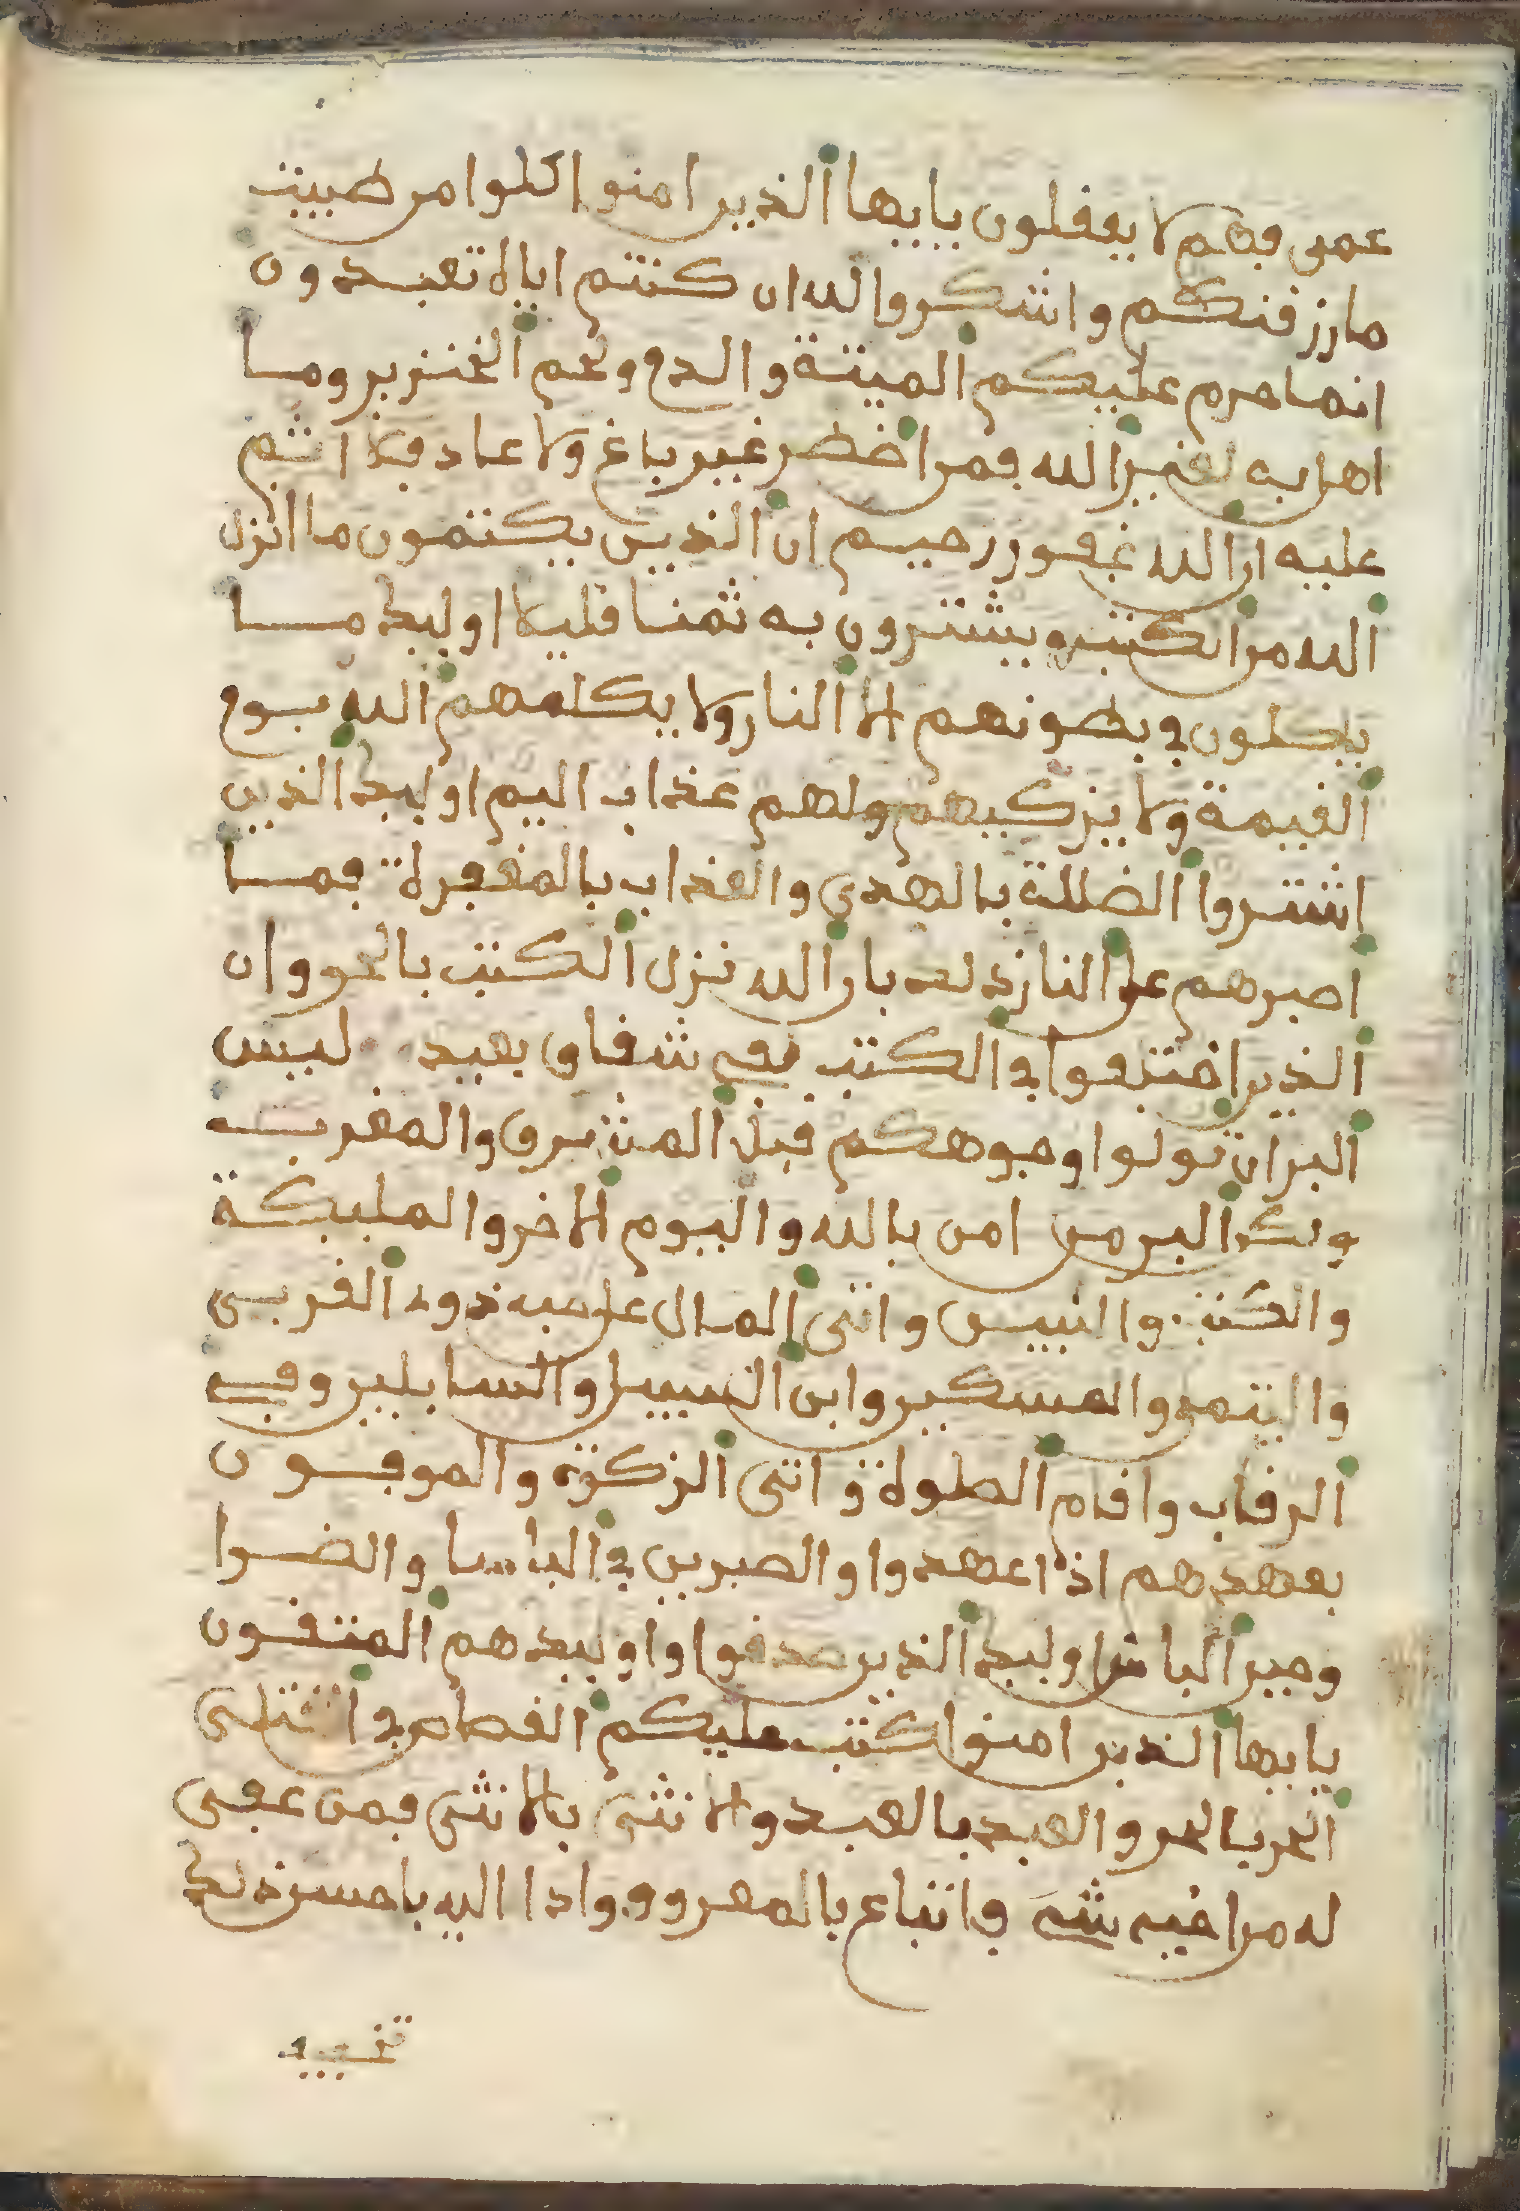 عمى فهم لا يعقلون يايها الذين امنوا كلوا من طيبت
ما رزقنكم واشكروا لله ان كنتم اياه تعبدون
انما حرم عليكم الميتة والدم ولحم الخنزير وما
اهل به لغير الله فمن اضطر غير باغ ولا عاد فلا اثم
عليه ان الله غفور رحيم ان الذين يكتمون ما انزل
الله من الكتب ويشترون به ثمنا قليلا اوليك ما
ياكلون في بطونهم الا النار ولا يكلمهم الله يوم
القيمة ولا يزكيهم ولهم عذاب اليم اوليك الذين
اشتروا الضللة بالهدى والعذاب بالمغفرة فما
اصبرهم على النار ذلك بان الله نزل الكتب بالحق وان
الذين اختلفوا في الكتب لفي شقاق بعيد ليس
البر ان تولوا وجوهكم قبل المشرق والمغرب
ولكن البر من امن بالله واليوم الاخر والمليكة
والكتب والنبيين واتى المال على حبه ذوى القربى
واليتمى والمسكين وابن السبيل والسايلين وفي
الرقاب واقام الصلوة واتى الزكوة والموفون
بعهدهم اذا عهدوا والصبرين في الباسا والضرا
وحين الباس اوليك الذين صدقوا واوليك هم المتقون
يايها الذين امنوا كتب عليكم القصاص في القتلى
الحر بالحر والعبد بالعبد والانثى بالانثى فمن عفى
له من اخيه شى فاتباع بالمعروف وادا اليه باحسن ذلك
تخفيف